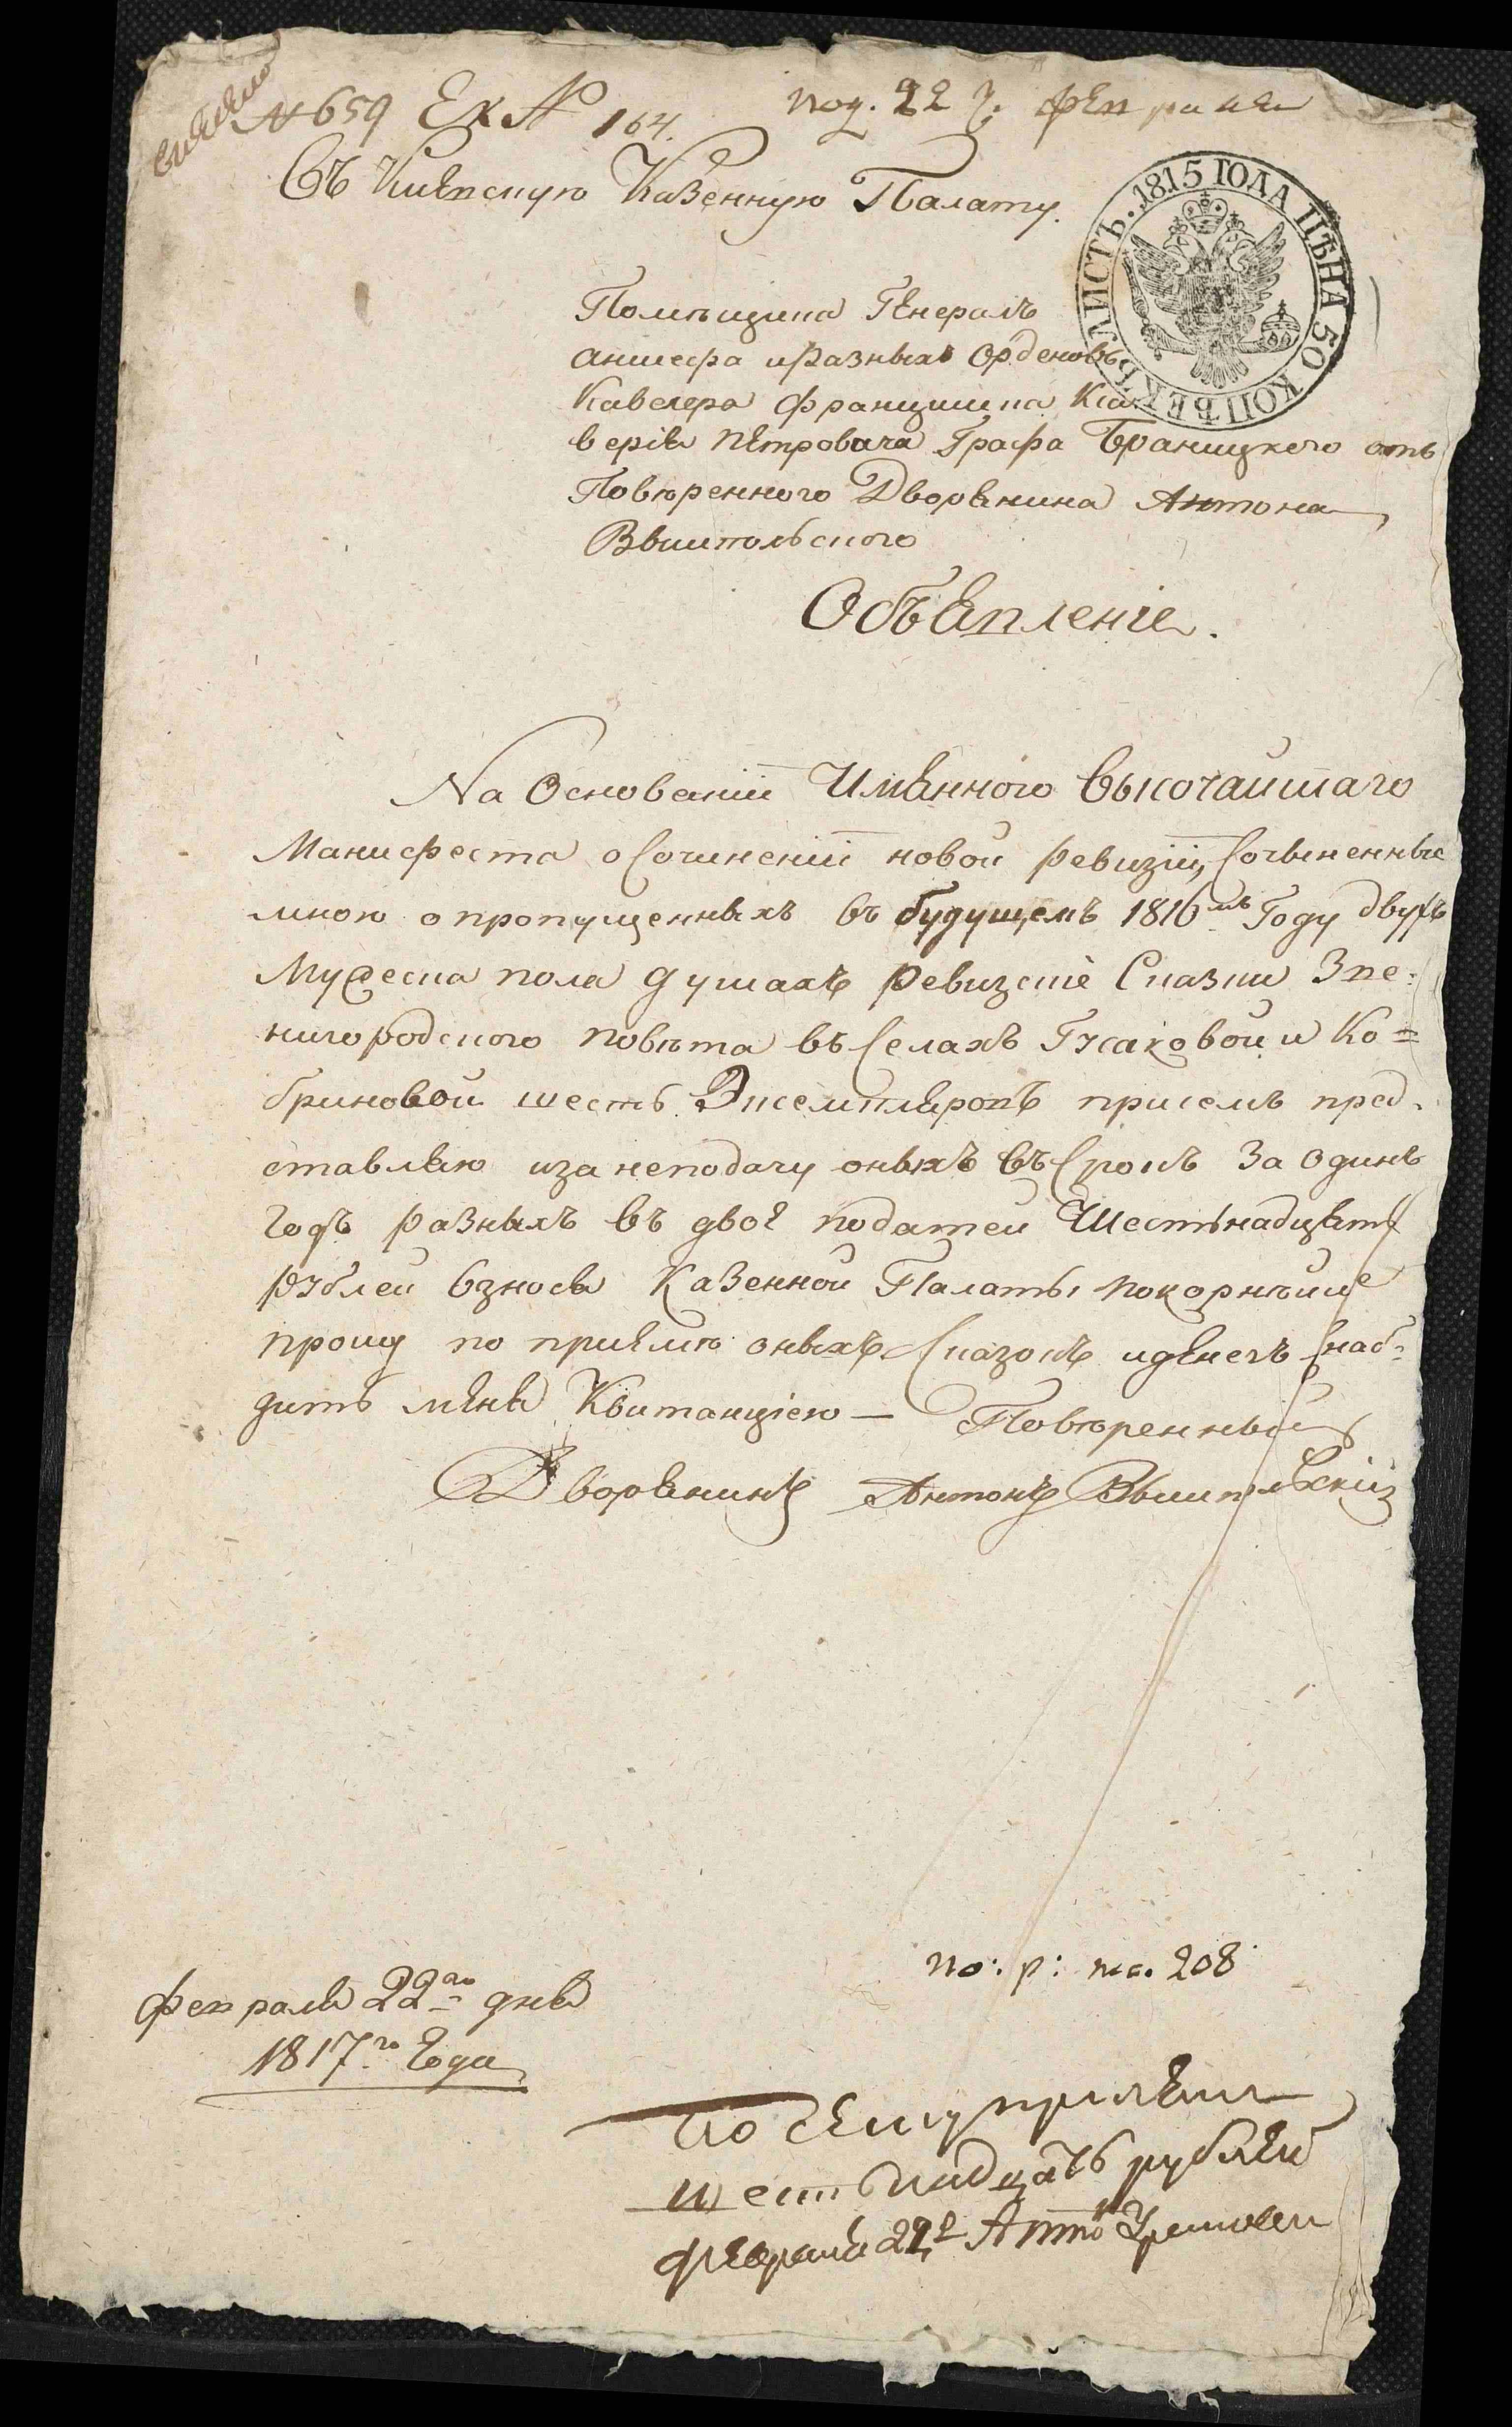 № 659 Ек № 164. под. 22 г. февраля
Въ Киевскую Казенную Палату.
ЛИСТЪ. 1815 ГОДА ЦѢНА 50 КОПѢЕКЪ
Помѣщика Генералъ
аншефа и разныхъ Орденовъ
Кавалера францишка Кса
верія Петровича Графа Браницкого отъ
Повѣренного Дворянина Антона
Объявленіе.
На Основаніи Имянного Высочайшаго
Манифеста о Сочиненіи новой ревизіи, Сочиненные
мною о пропущенныхъ въ будущемъ 1816мъ Году двухъ
Мужеска пола душахъ ревизскіе Сказки Зве-
нигородского повѣта въ Селахъ Гусаковой и Ко=
бриновой шесть Экземпляровъ присемъ пред-
ставляю и за неподачу оныхъ въ Срокъ За Одинъ
Годъ разныхъ въ двое податей Шестьнадцять
рублей взнося Казенной Палаты покорнѣйше
прошу по пріемѣ оныхъ Сказокъ и денегъ Снаб-
дить меня Квитанціею — Повѣренный
Дворянинъ Антонъ
по: р: на. 208
февраля 22го дня
1817го Года
по Сему принялъ
шестьнадцать рублей
февраля 22